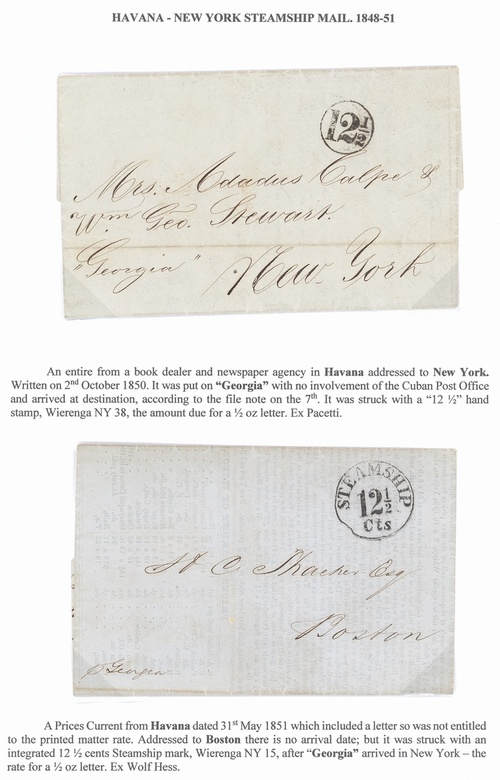 HAVANA - NEW YORK STEAMSHIP MAIL. 1848-51
12½
Mrs. Adadus Calpe &
Wm Geo. Stewart.
"Georgia"
New York
An entire from a book dealer and newspaper agency in Havana addressed to New York.
Written on 2nd October 1850. It was put on “Georgia” with no involvement of the Cuban Post Office
and arrived at destination, according to the file note on the 7th. It was struck with a “12 ½” hand
stamp, Wierenga NY 38, the amount due for a ½ oz letter. Ex Pacetti.
STEAMSHIP
12½
Cts
C. Thacher Esq
Boston
p Georgia
A Prices Current from Havana dated 31st May 1851 which included a letter so was not entitled
to the printed matter rate. Addressed to Boston there is no arrival date; but it was struck with an
integrated 12 ½ cents Steamship mark, Wierenga NY 15, after “Georgia” arrived in New York – the
rate for a ½ oz letter. Ex Wolf Hess.